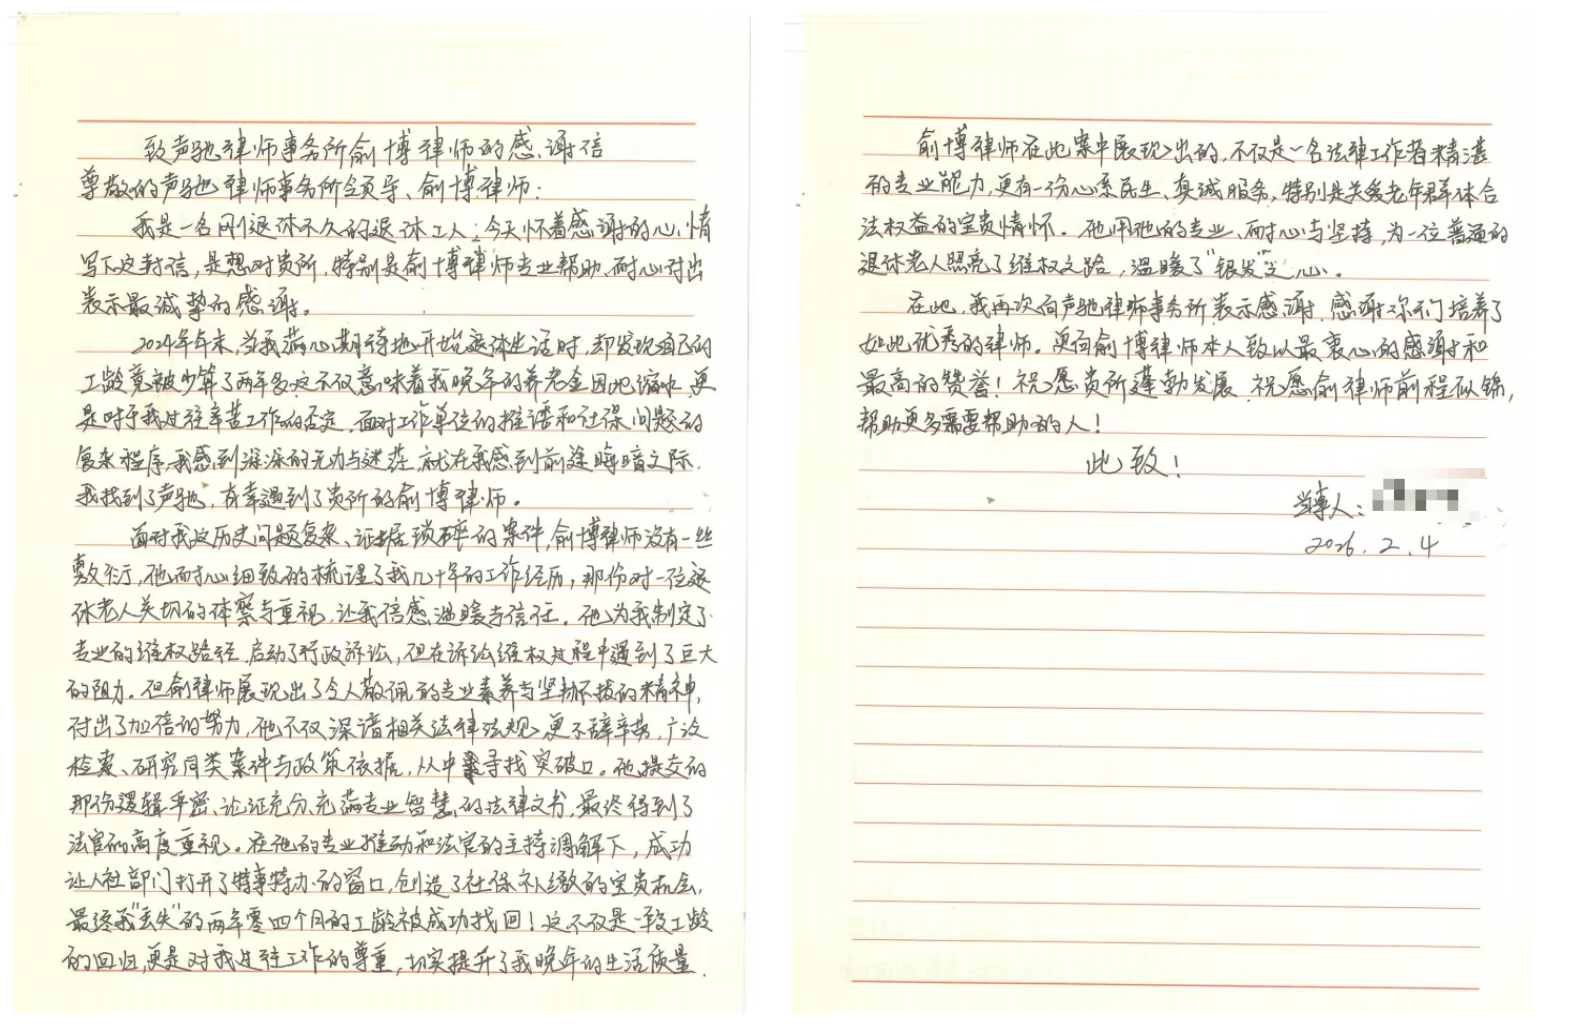 致声驰律师事务所俞博律师的感谢信
尊敬的声驰律师事务所领导、俞博律师：
我是一名刚退休不久的退休工人；今天怀着感谢的心情
写下这封信，是想对贵所，特别是俞博律师专业帮助、耐心付出
表示最诚挚的感谢。
2024年年末，当我满心期待地开始退休生活时，却发现自己的
工龄竟被少算了两年多，这不仅意味着我晚年的养老金因此缩水，更
是对于我过往辛苦工作的否定。面对工作单位的推诿和社保问题的
复杂程序，我感到深深的无力与迷茫，就在我感到前途晦暗之际，
我找到了声驰，有幸遇到了贵所的俞博律师。
面对我这历史问题复杂、证据琐碎的案件，俞博律师没有一丝
敷衍，他耐心细致的梳理了我几十年的工作经历，那份对一位退
休老人关切的体察与重视，让我倍感温暖与信任。他为我制定了
专业的维权路径，启动了行政诉讼，但在诉讼维权过程中遇到了巨大
的阻力。但俞律师展现出了令人敬佩的专业素养与坚韧不拔的精神，
付出了加倍的努力，他不仅深谙相关法律法规，更不辞辛劳，广泛
检索、研究同类案件与政策依据，从中寻找突破口。他提交的
那份逻辑严密、论证充分、充满专业智慧的法律文书，最终得到了
法官的高度重视。在他的专业推动和法官的主持调解下，成功
让人社部门打开了特事特办的窗口，创造了社保补缴的宝贵机会，
最终我“丢失”的两年零四个月的工龄被成功找回！这不仅是一致工龄
的回归，更是对我过往工作的尊重，切实提升了我晚年的生活质量。
俞博律师在此案中展现出的，不仅是一名法律工作者精湛
的专业能力，更有一份心系民生、真诚服务，特别是关爱老年群体合
法权益的宝贵情怀。他用他的专业、耐心与坚持，为一位普通的
退休老人照亮了维权之路，温暖了“银发”之心。
在此，我再次向声驰律师事务所表示感谢，感谢你们培养了
如此优秀的律师。更向俞博律师本人致以最衷心的感谢和
最高的赞誉！祝愿贵所蓬勃发展，祝愿俞律师前程似锦，
帮助更多需要帮助的人！
此致！
当事人：
2026.2.4